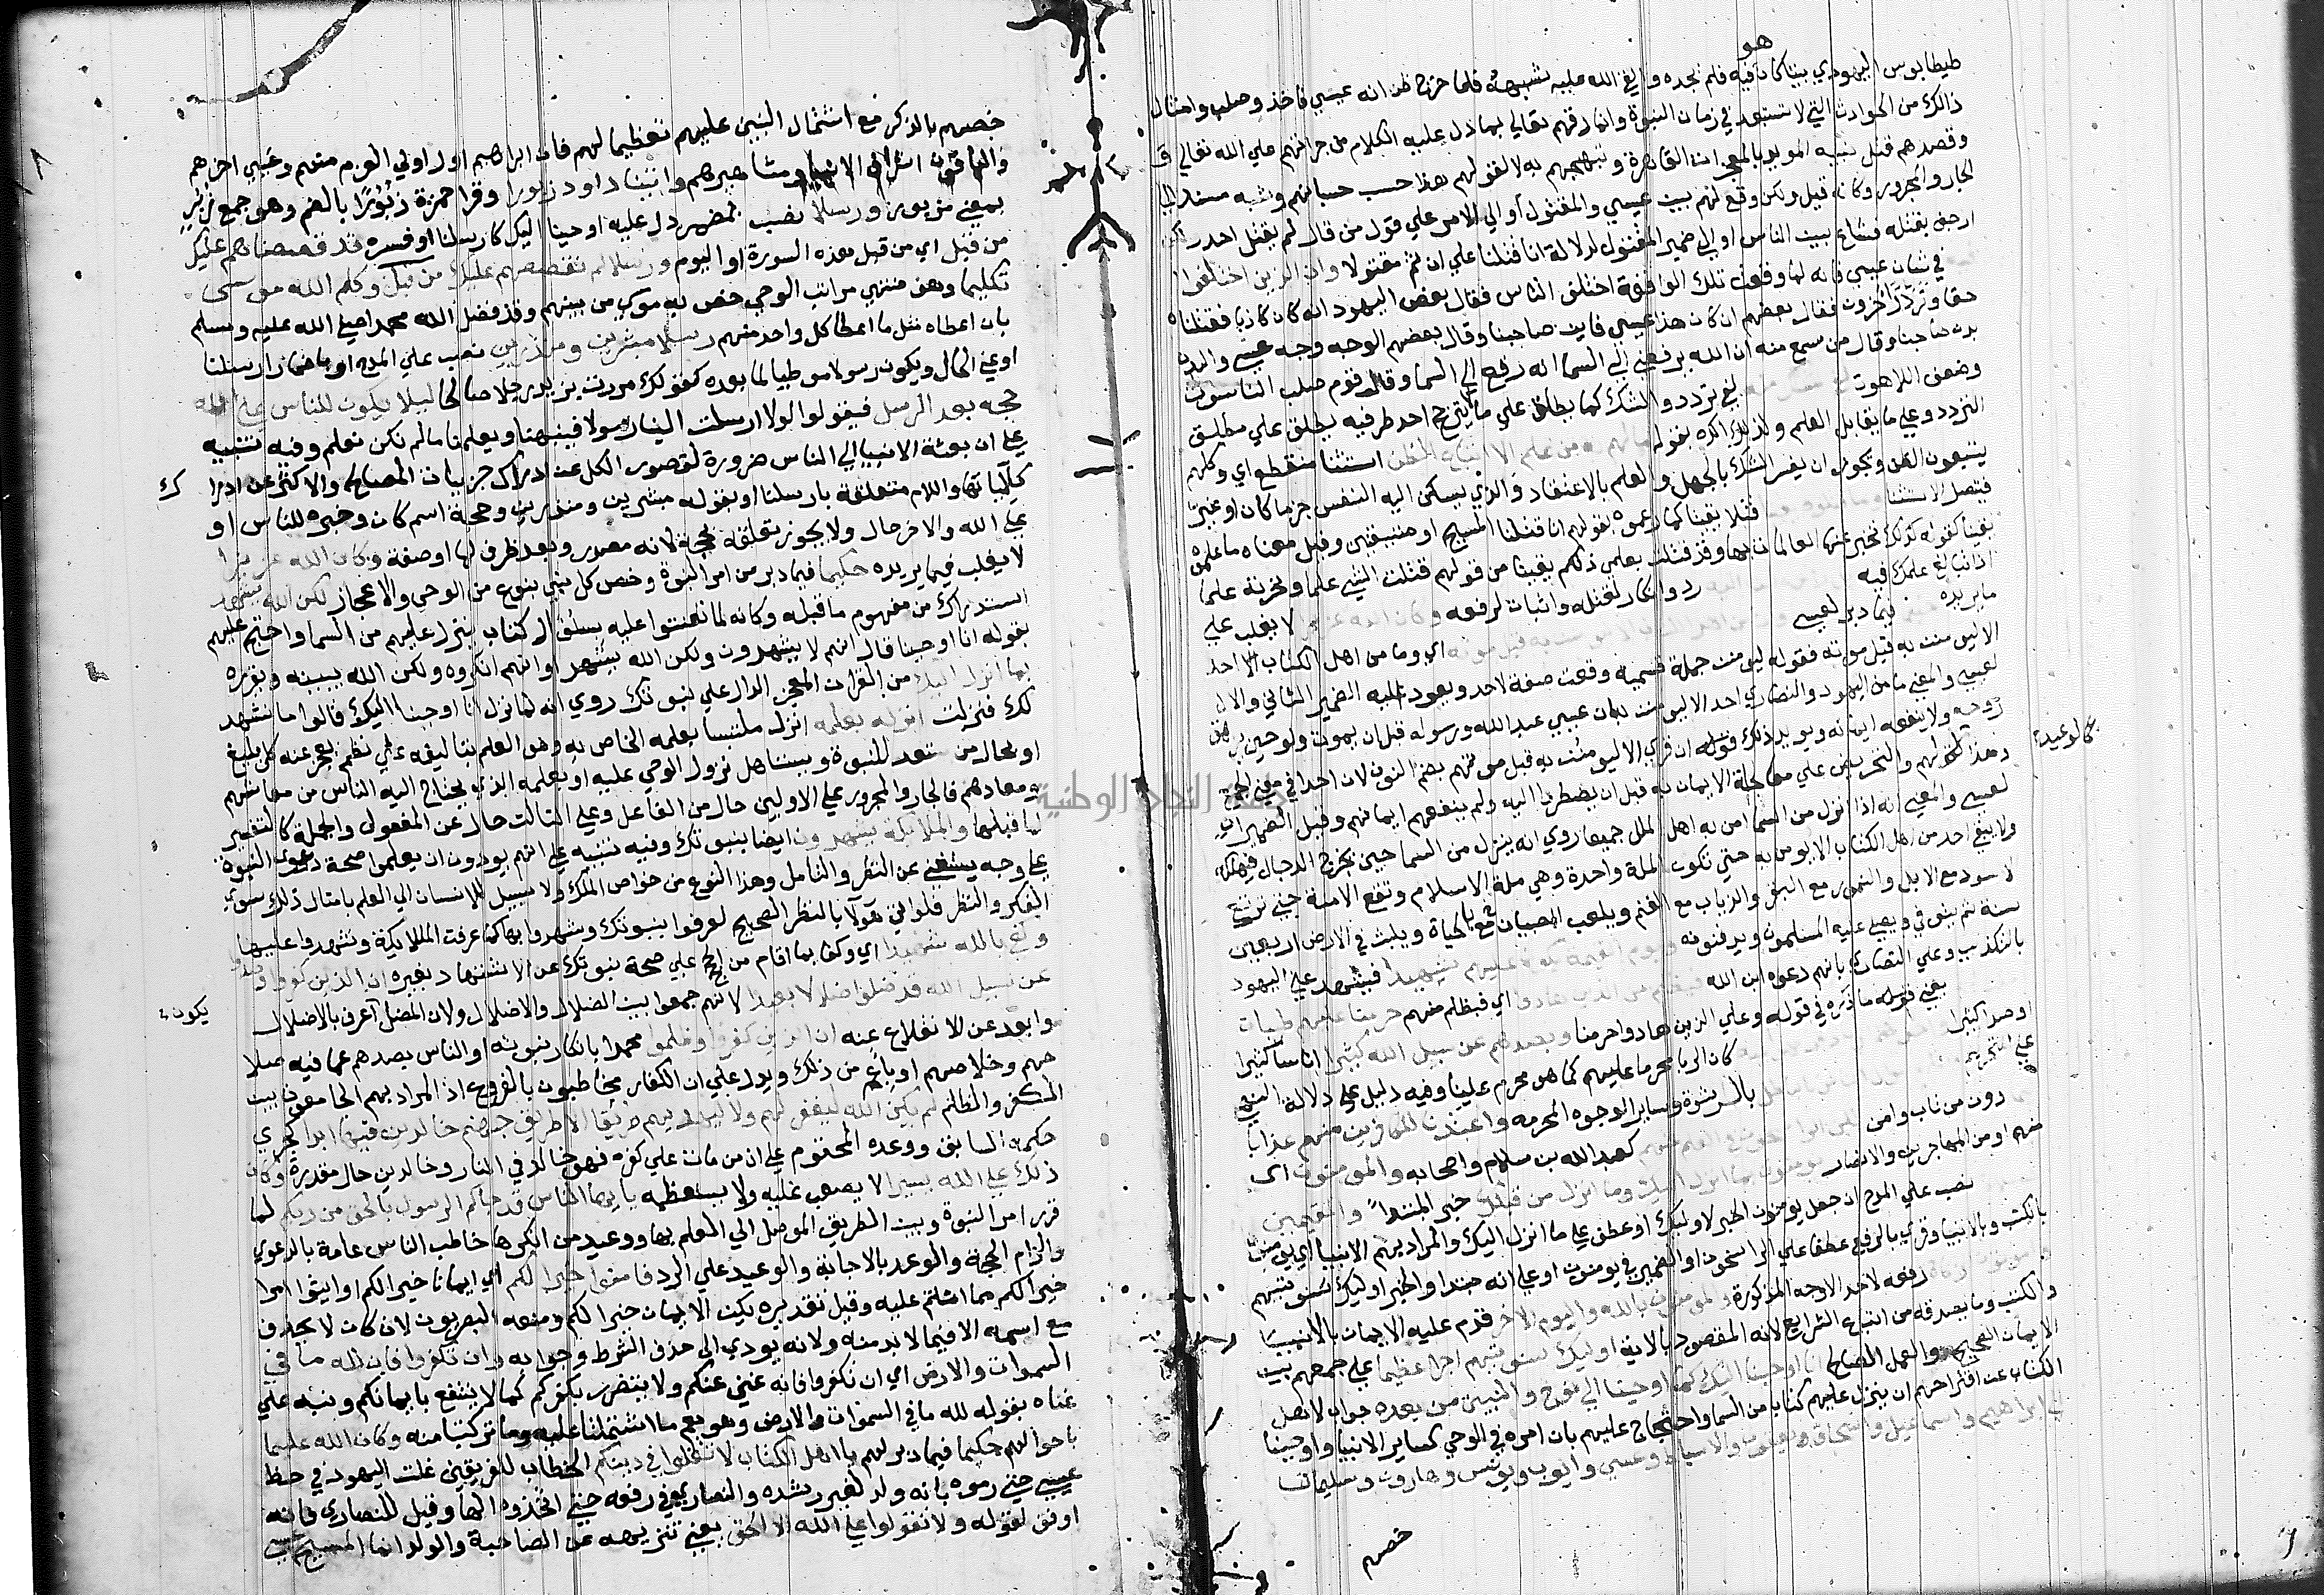 هو
طيطابوس اليهودي بيتا كان فيه فلم يجده والقي الله عليه شبهه فلما خرج ظن انه عيسي فاخذ وصلب وامثال
ذالك من الخوارق التي لا تستبعد في زمان النبوة وانما ذمهم تعالي بما دل عليه الكلام من جراتهم علي الله تعالي
وقصدهم قتل نبيه المويد بالمعجزات القاهرة وتبجحهم به لا لقولهم هذا حسب حسبانهم وشبه مسند الي
الجار والمجرور وكانه قيل ولكن وقع لهم بين عيسي والمقتول او الي الامر علي قول من قال لم يقتل احد
ارجف بقتله فشاع بين الناس او الي ضمير المقتول لدلالة انا قتلنا علي ان ثم مقتولا وان الذين اختلفوا
في شان عيسي فانه لما وقعت تلك الواقعة اختلف الناس فقال بعض اليهود انه كان كاذبا فقتلناه
حقا وتردد اخرون فقال بعضهم ان كان هذا عيسي فاين صاحبنا وقال بعضهم الوجه وجه عيسي والبدن
بدن صاحبنا وقال من سمع منه ان الله يرفعني الي السما انه رفع الي السما وقال قوم صلب الناسوت
وصعد اللاهوت لفي تردد والشك كما يطلق علي ما لا يترجح احد طرفيه يطلق علي مطلق
التردد وعلي ما يقابل العلم ولذلك اكده بقوله ما لهم به من علم الا اتباع الظن استثنا منقطع اي ولكنهم
يتبعون الظن ويجوز ان يفسر الشك بالجهل والعلم بالاعتقاد الذي يسكن اليه النفس جزما كان او غيره
فيتصل الاستثنا وما قتلوه قتلا يقينا كما زعموه بقولهم انا قتلنا المسيح او متيقنين وقيل معناه ما علموه
يقينا كقوله كذلك تخبر عنها العالمات بها وقد قتلت بعلمي ذلكم يقينا من قولهم قتلت الشي علما ونحرته علما
اذا تبالغ علمك فيه رد وانكار لقتله واثبات لرفعه وكان الله عزيزا لا يغلب علي
ما يريده فيما دبر لعيسي اي وما من اهل الكتاب الا احد
الا ليومنن به قبل موته فقوله ليومنن جملة قسمية وقعت صفة لاحد ويعود عليه الضمير الثاني والاول
لعيسي والمعني ما من اليهود والنصاري احد الا ليومنن بان عيسي عبد الله ورسوله قبل ان يموت ولو حين
روحه ولا ينفعه ايمانه ويويد ذلك قوله ان قري الا ليومنن به قبل موتهم بضم النون لان احدا في معني الجمع
وهذا كالوعيد لهم والتحريض علي معاجلة الايمان به قبل ان يضطروا اليه ولم ينفعهم ايمانهم وقيل الضميران
لعيسي والمعني انه اذا نزل من السما امن به اهل الملل جميعا روي انه ينزل من السما حين يخرج الدجال فيهلكه
ولا يبقي احد من اهل الكتاب الا يومن به حتي تكون الملة واحدة وهي ملة الاسلام وتقع الامنة حتي ترتع
الاسود مع الابل والنمور مع البقر والذياب مع الغنم ويلعب الصبيان بالحياة ويلبث في الارض اربعين
سنة ثم يتوفي ويصلي عليه المسلمون ويدفنونه ويوم القيمة يكون عليهم شهيدا فيشهد علي اليهود
بالتكذيب وعلي النصاري بانهم دعوه ابن الله فبظلم من الذين هادوا اي فبظلم منهم حرمنا عليهم طيبات
يعني قوله ما ذكره في قوله وعلي الذين هادوا حرمنا وبصدهم عن سبيل الله كثيرا اناسا كثيرا
او صدا كثيرا كان الربا محرما عليهم كما هو محرم علينا وفيه دليل علي دلالة النهي
علي التحريم بالرشوة وساير الوجوه المحرمة واعتدنا للكافرين منهم عذابا
دون من تاب وامن لكن الراسخون في العلم منهم كعبد الله بن سلام واصحابه والمومنون اي
منهم او من المهاجرين والانصار يومنون بما انزل اليك وما انزل من قبلك خبر المبتدا والمقيمين
نصب علي المدح ان جعل يومنون الخبر لاوليك او عطف علي ما انزل اليك والمراد بهم الانبيا اي يومنون
بالكتب وبالانبيا وقري بالرفع عطفا علي الراسخون او الضمير في يومنون او علي انه مبتدا والخبر اوليك سنوتيهم
رفعه لاحد الاوجه المذكورة والمومنون بالله واليوم الاخر قدم عليه الايمان بالانبيا
والكتب وما يصدقه من اتباع الشرايع لانه المقصود بالاية اوليك سنوتيهم اجرا عظيما علي جمعهم بين
الايمان الصحيح والعمل الصالح انا اوحينا اليك كما اوحينا الي نوح والنبيين من بعده جواب لاهل
الكتاب عن اقتراحهم ان ينزل عليهم كتابا من السما واحتجاج عليهم بان امره في الوحي كساير الانبيا واوحينا
الي ابراهيم واسماعيل واسحاق ويعقوب والاسباط وعيسي وايوب ويونس وهارون وسليمان
خصهم
كالوعيد
خصهم بالذكر مع اشتمال النبيين عليهم تعظيما لهم فان ابراهيم اول اولي العزم منهم وعيسي اخرهم
والباقون اشراف الانبيا ومشاهيرهم واتينا داود زبورا وقرا حمزة زبورا بالضم وهو جمع زبر
بمعني مزبور ورسلا نصب بمضمر دل عليه اوحينا اليك كارسلنا او فسره قد قصصناهم عليك
من قبل اي من قبل هذه السورة او اليوم ورسلا لم نقصصهم عليك من قبل وكلم الله موسي
تكليما وهو منتهي مراتب الوحي خص به موسي من بينهم وقد فضل الله محمدا صلي الله عليه وسلم
بان اعطاه مثل ما اعطا كل واحد منهم رسلا مبشرين ومنذرين نصب علي المدح او باضمار ارسلنا
او علي الحال ويكون رسولا موطيا لما بعده كقولك مررت بزيد رجلا صالحا ليلا يكون للناس علي الله
حجة بعد الرسل فيقولوا لولا ارسلت الينا رسولا فينبهنا ويعلمنا ما لم نكن نعلم وفيه تنبيه
علي ان بعثة الانبيا الي الناس ضرورة لقصور الكل عن ادراك جزييات المصالح والاكثر عن ادرا ك
كلياتها واللام متعلقة بارسلنا او بقوله مبشرين ومنذرين وحجة اسم كان وخبره للناس او
علي الله والاخر حال ولا يجوز تعلقه بحجة لانه مصدر وبعد ظرف لها او صفة وكان الله عزيزا
لا يغلب فيما يريده حكيما فيما دبر من امر النبوة وخص كل نبي بنوع من الوحي والاعجاز لكن الله يشهد
استدراك من مفهوم ما قبله وكانه لما تعنتوا عليه بسوال كتاب ينزل عليهم من السما واحتج عليهم
بقوله انا اوحينا قال انهم لا يشهدون ولكن الله يشهد او انهم انكروه ولكن الله يبينه ويقرره
بما انزل اليك من القران المعجز الدال علي نبوتك روي انه لما نزل انا اوحينا اليك قالوا ما نشهد
لك فنزلت انزله بعلمه انزله ملتبسا بعلمه الخاص به وهو العلم بتاليفه علي نظم يعجز عنه كل بليغ
او بحال من يستعد للنبوة ويستاهل نزول الوحي عليه او بعلمه الذي يحتاج اليه الناس من معاشهم
ومعادهم فالجار والمجرور علي الاولين حال من الفاعل وعلي الثالث حال عن المفعول والجملة كالتفسير
لما قبلها والملايكة يشهدون ايضا بنبوتك وفيه تنبيه علي انهم يودون ان يعلموا صحة دعوي النبوة
علي وجه يستغني عن النظر والتامل وهذا النوع من خواص الملك ولا سبيل للانسان الي العلم بامثال ذلك سوي
الفكر والنظر فلو اتي هولا بالنظر الصحيح لعرفوا بنبوتك وشهدوا بها كما عرفت الملايكة وشهدوا عليها
وكفي بالله شهيدا اي وكفا بما اقام من الحجج علي صحة نبوتك عن الاستشهاد بغيره ان الذين كفروا وصدوا
عن سبيل الله قد ضلوا ضلالا بعيدا لانهم جمعوا بين الضلال والاضلال ولان المضل يكون اعرق بالاضلال
وابعد عن الانقلاع عنه ان الذين كفروا وظلموا محمدا بانكار نبوته او الناس بصدهم عما فيه صلا
حهم وخلاصهم او باعم من ذلك ويدل علي ان الكفار مخاطبون بالفروع اذ المراد بهم الجامعون بين
الكفر والظلم لم يكن الله ليغفر لهم ولا ليهديهم طريقا الا طريق جهنم خالدين فيها ابدا لجري
حكمه السابق ووعده المحتوم علي ان من مات علي كفره فهو خالد في النار وخالدين حال مقدرة وكان
ذلك علي الله يسيرا لا يصعب عليه ولا يستعظمه يا ايها الناس قد جاكم الرسول بالحق من ربكم لما
قرر امر النبوة وبين الطريق الموصل الي العلم بها ووعيد من انكرها خاطب الناس عامة بالدعوي
والزام الحجة والوعد بالاجابة والوعيد علي الرد فامنوا خيرا لكم اي ايمانا خيرا لكم او ايتوا امرا
خيرا لكم مما انتم عليه وقيل تقديره يكن الايمان خيرا لكم ومنعه البصريون لان كان لا يحذف
مع اسمه الا فيما لا بد منه ولانه يودي الي حذف الشرط وجوابه وان تكفروا فان لله ما في
السموات والارض اي ان تكفروا فانه غني عنكم ولا يتضرر بكفركم كما لا ينتفع بايمانكم ونبه علي
غناه بقوله لله ما في السموات والارض وهو يعم ما اشتملتا عليه وما تركبتا منه وكان الله عليما
باحوالهم حكيما فيما دبر لهم يا اهل الكتاب لا تغلوا في دينكم الخطاب للفريقين غلت اليهود في حط
عيسي حتي رموه بانه ولد لغير رشده والنصاري في رفعه حتي اتخذوه الها وقيل للنصاري فانه
اوفق لقوله ولا تقولوا علي الله الا الحق يعني تنزيهه عن الصاحبة والولد انما المسيح عيسي